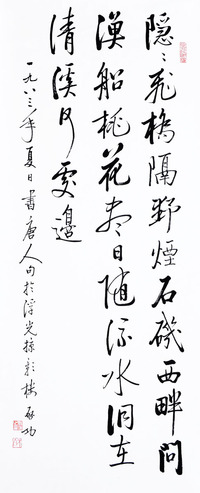 隐〻飛橋隔野煙石磯西畔問
漁船桃花盡日随流水洞在
清溪何處邊
一九八三年夏日書唐人句於浮光掠影樓啟功